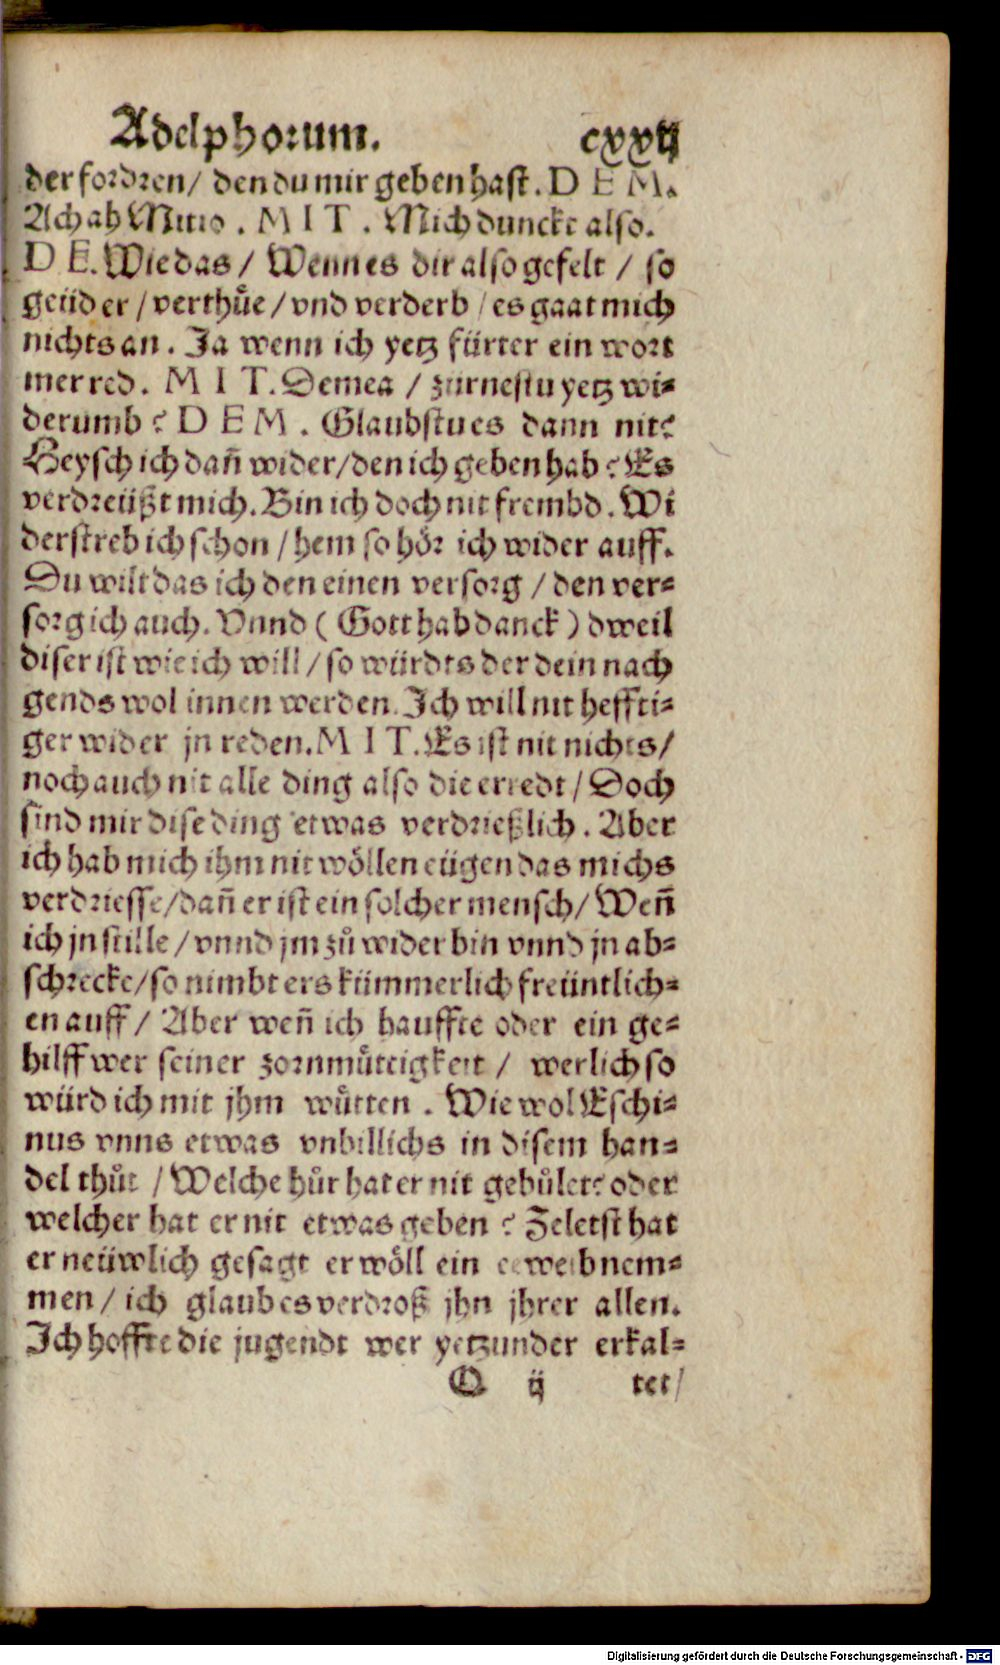 Adelphorum. cxxij
der fordren/ den du mir geben hast. D E M.
Ach ah Mitio. M I T. Mich dunckt also.
D E. Wie das/ Wenn es dir also gefelt/ so
geüd er/ verthůe/ vnd verderb/ es gaat mich
nichts an. Ja wenn ich yetz fürter ein wort
mer red. M I T. Demea/ zürnestu yetz wi-
derumb? D E M. Glaubstu es dann nit?
Heysch ich dañ wider/ den ich geben hab? Es
verdreüßt mich. Bin ich doch nit frembd. Wi
derstreb ich schon/ hem so hör ich wider auff.
Du wilt das ich den einen versorg/ den ver-
sorg ich auch. Vnnd (Gott hab danck) dweil
diser ist wie ich will/ so würdts der dein nach
gends wol innen werden. Ich will nit heffti-
ger wider jn reden. M I T. Es ist nit nichts/
noch auch nit alle ding also die er redt/ Doch
sind mir dise ding etwas verdrießlich. Aber
ich hab mich ihm nit wöllen eügen das michs
verdriesse/ dañ er ist ein solcher mensch/ Weñ
ich jn stille/ vnnd jm zů wider bin vnnd jn ab-
schrecke/ so nimbt ers kümmerlich freüntlich-
en auff/ Aber weñ ich hauffte oder ein ge-
hilff wer seiner zornmůttigkeit/ werlich so
würd ich mit jhm wůtten. Wie wol Eschi-
nus vnns etwas vnbillichs in disem han-
del thůt/ Welche hůr hat er nit gebůlet? oder
welcher hat er nit etwas geben? Zeletst hat
er neüwlich gesagt er wöll ein eeweib nem-
men/ ich glaub es verdroß jhn jhrer allen.
Ich hoffte die jugendt wer yetzunder erkal-
Q ij tet/
Digitalisierung gefördert durch die Deutsche Forschungsgemeinschaft - DFG